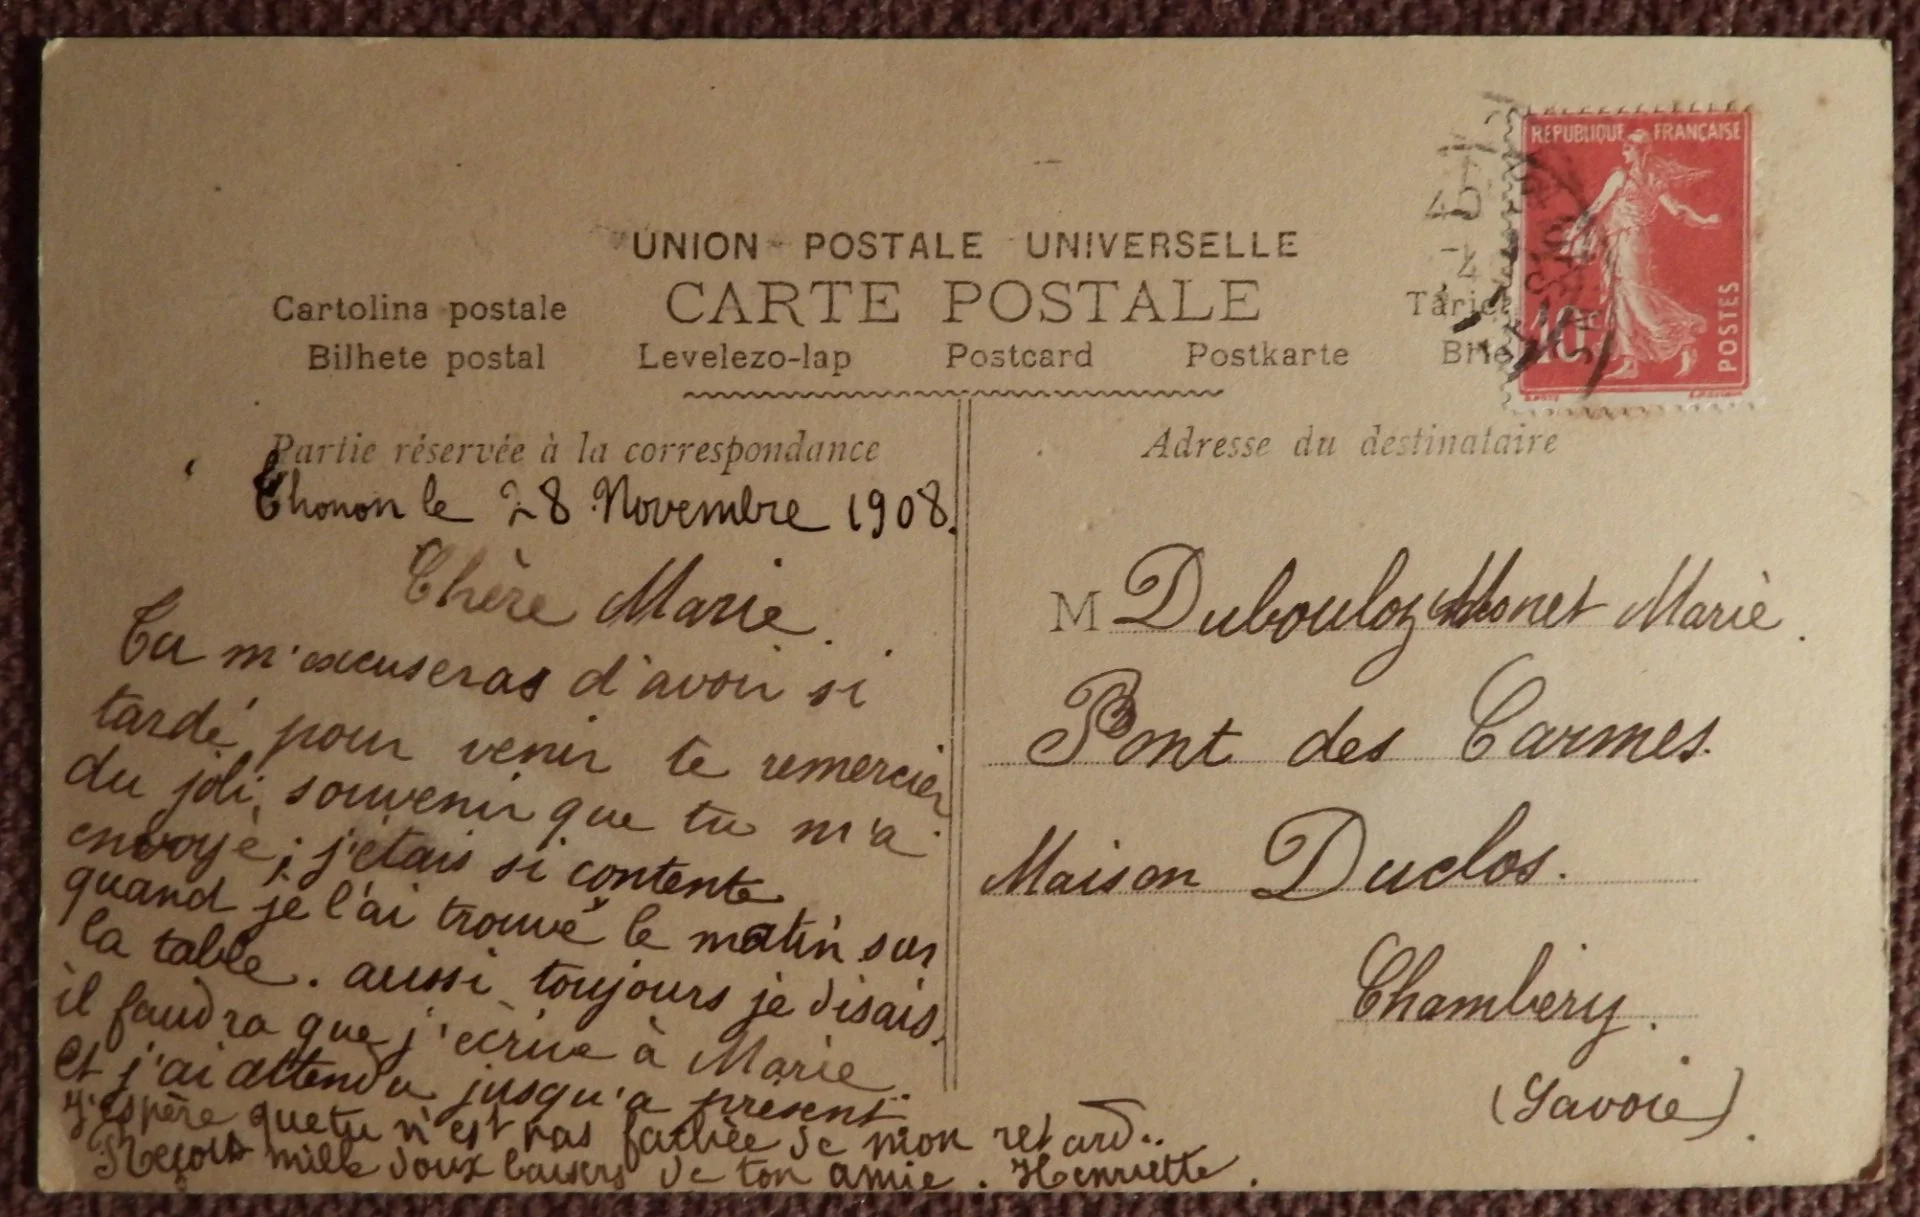 REPUBLIQUE FRANÇAISE
POSTES
10
UNION POSTALE UNIVERSELLE
CARTE POSTALE
Cartolina postale
Bilhete postal Levelezo-lap Postcard Postkarte
Partie réservée à la correspondance
Thonon le 28 Novembre 1908.
Chère Marie.
Tu m'excuseras d'avoir si
tardé pour venir te remercier
du joli souvenir que tu m'a
envoyé; j'étais si contente
quand je l'ai trouvé le matin sur
la table. aussi toujours je disais.
il faudra que j'écrive à Marie
et j'ai attendu jusqu'a présent.
J'espère que tu n'est pas fachée de mon retard..
Reçois mille doux baisers de ton amie. Henriette.
Adresse du destinataire
M Dubouloz Marie.
Pont des Carmes.
Maison Duclos.
Chambéry.
(Savoie).